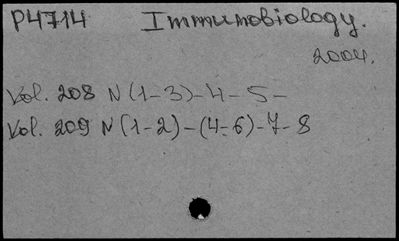 P4714 Immunobiology.
2004.
Vol. 208 N (1-3)-4-5-
Vol. 209 N (1-2)-(4-6)-7-8